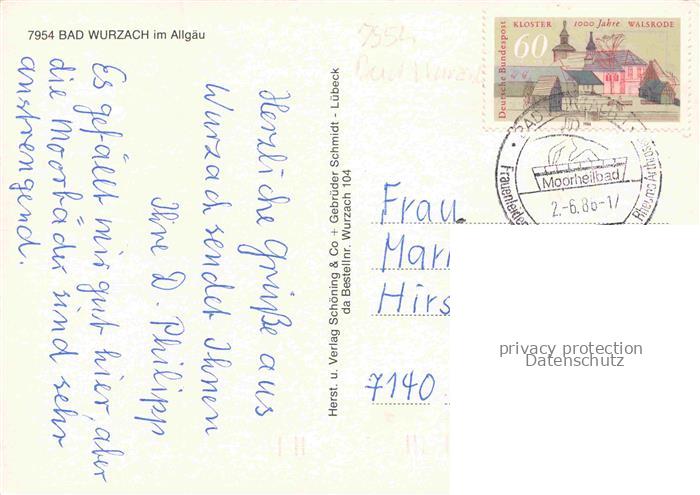 7954 BAD WURZACH im Allgäu
Herzliche Grüße aus
Wurzach sendet Ihnen
Ihre D. Philipp
Es gefällt mir gut hier, aber
die Moorbäder sind sehr
anstrengend.
Herst. u. Verlag Schöning & Co + Gebrüder Schmidt - Lübeck
da Bestellnr. Wurzach 104
7954
Bad Wurza
Deutsche Bundespost
KLOSTER 1000 Jahre WALSRODE
60
BAD
Moorheilbad
2.-6.86-17
Frauenleiden
Rheuma Arthrosen
Frau
Mar
Hirs
7140
privacy protection
Datenschutz